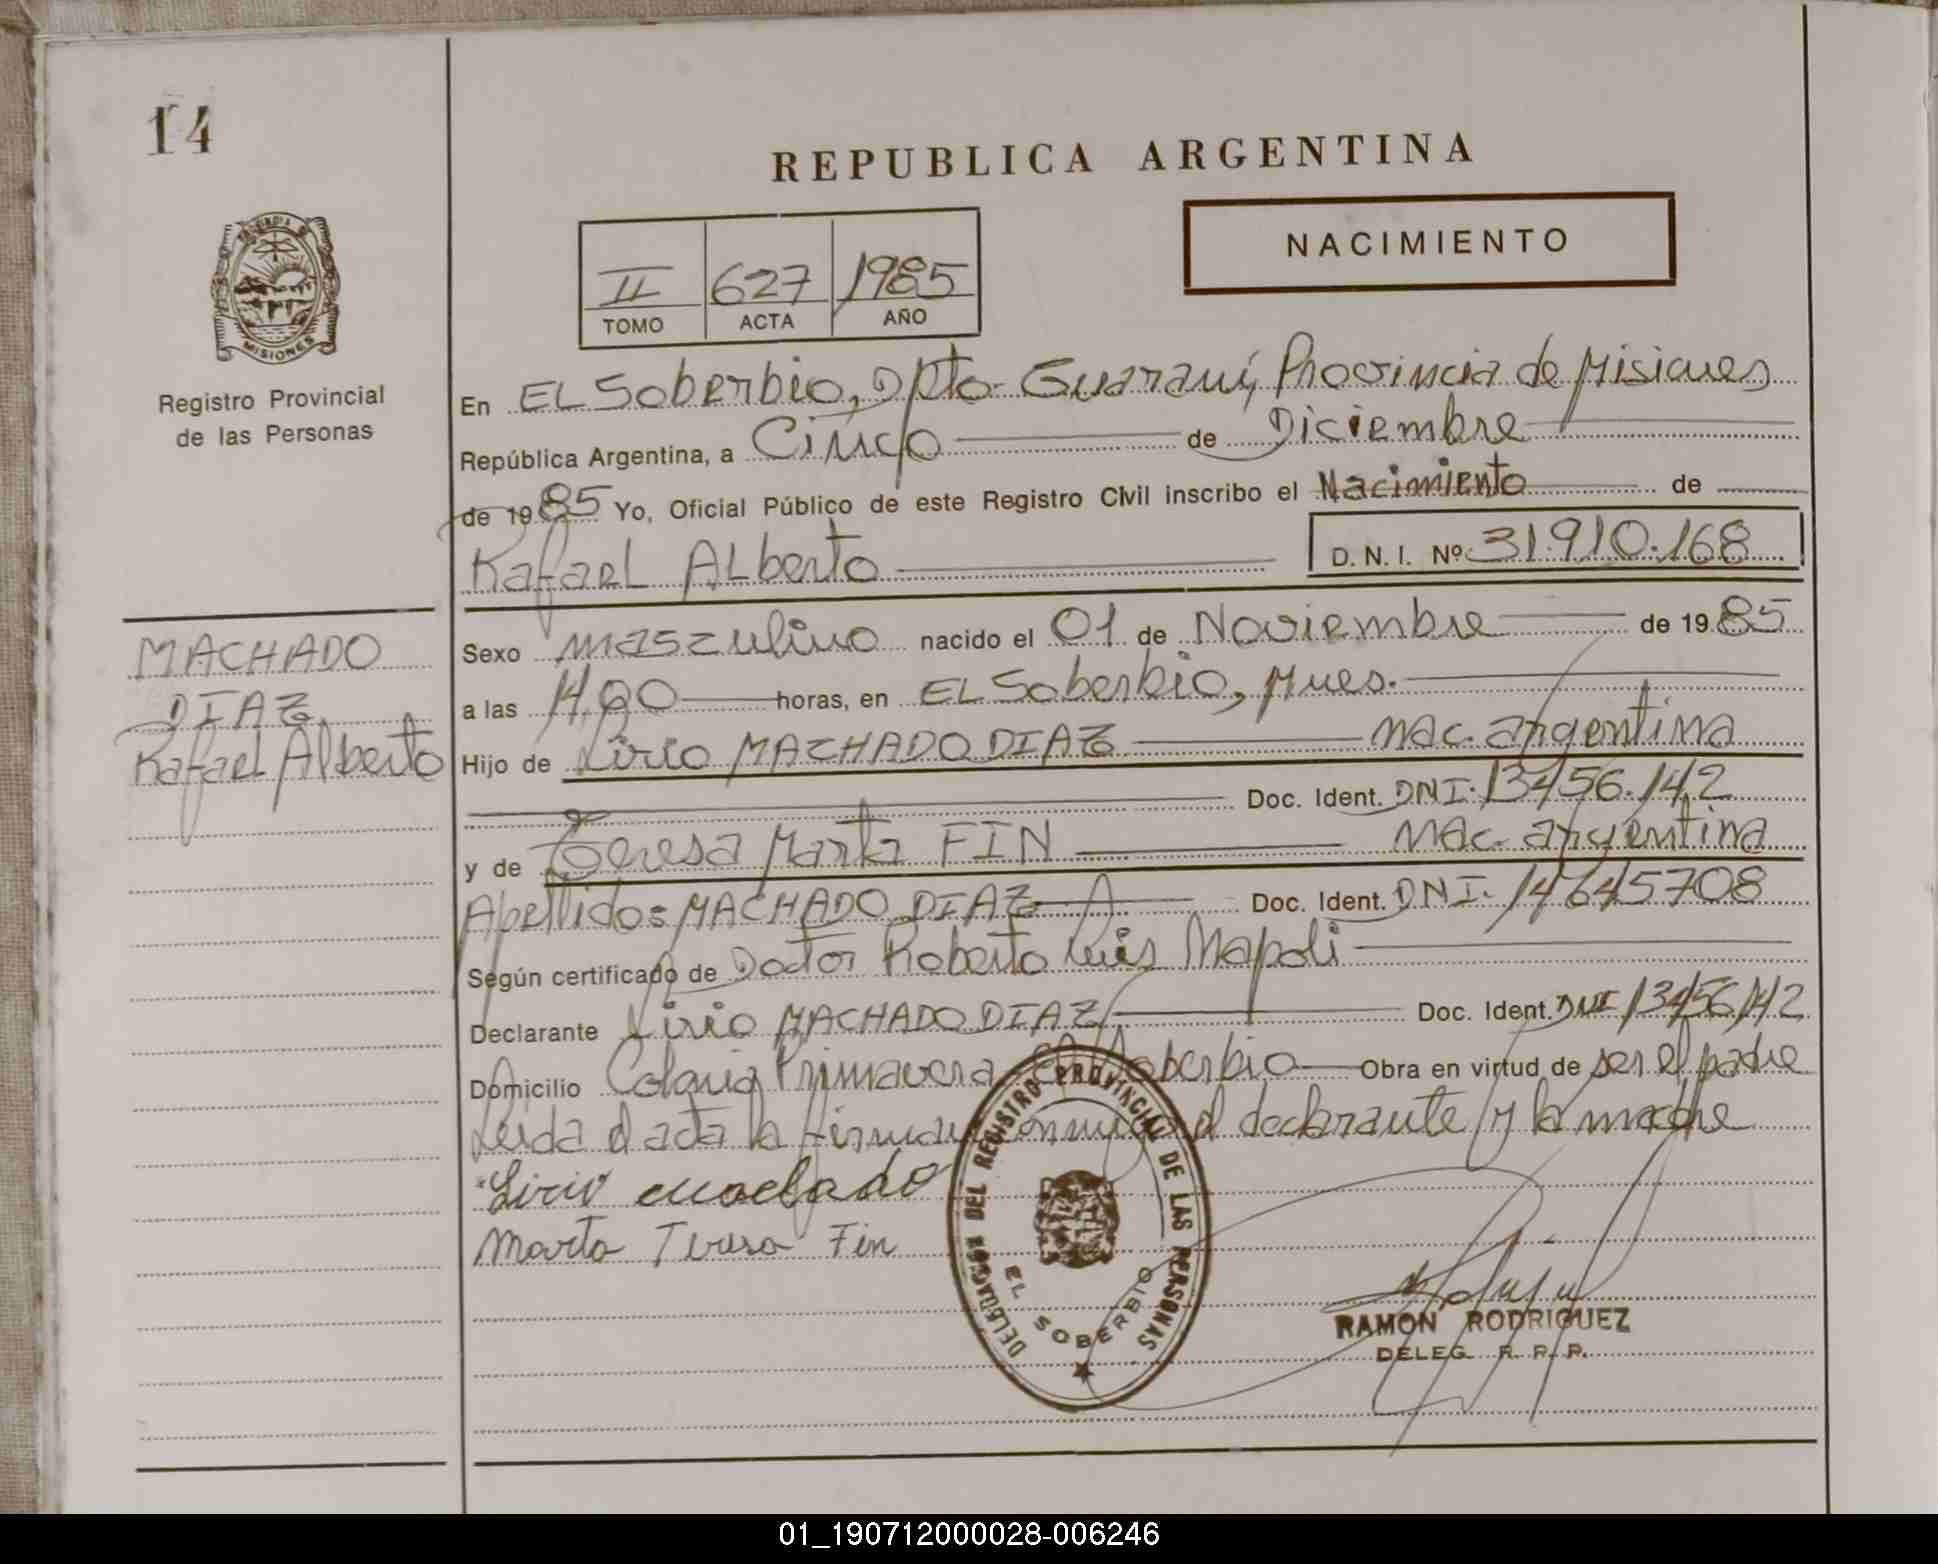 14
REPUBLICA ARGENTINA
NACIMIENTO
II 627 1985
TOMO ACTA AÑO
MISIONES
Registro Provincial
de las Personas
En EL Soberbio, Dpto. Guaraní, Provincia de Misiones
República Argentina, a Cinco de Diciembre
de 1985 Yo, Oficial Público de este Registro Civil inscribo el Nacimiento de
Rafael ALberto D. N. I. Nº 31.910.168
MACHADO
DIAZ
Rafael Alberto
Sexo masculino nacido el 01 de Noviembre de 1985
a las 14,00 horas, en EL Soberbio, Mnes.
Hijo de Lirio MACHADO DIAZ nac. argentina
Doc. Ident. DNI. 13456.142
y de Teresa Marta FIN nac. argentina
Apellido: MACHADO DIAZ Doc. Ident. DNI. 14645708
Según certificado de Doctor Roberto Luis Napoli
Declarante Lirio MACHADO DIAZ Doc. Ident. DNI 13456142
Domicilio Colonia Primavera El Soberbio Obra en virtud de ser el padre
Leida el acta la firman conmigo el declarante y la madre
Lirio machado
Marta Teresa Fin
DELEGACION DEL REGISTRO PROVINCIAL DE LAS PERSONAS
EL SOBERBIO
RAMON RODRIGUEZ
DELEG. R. P. P.
01_190712000028-006246